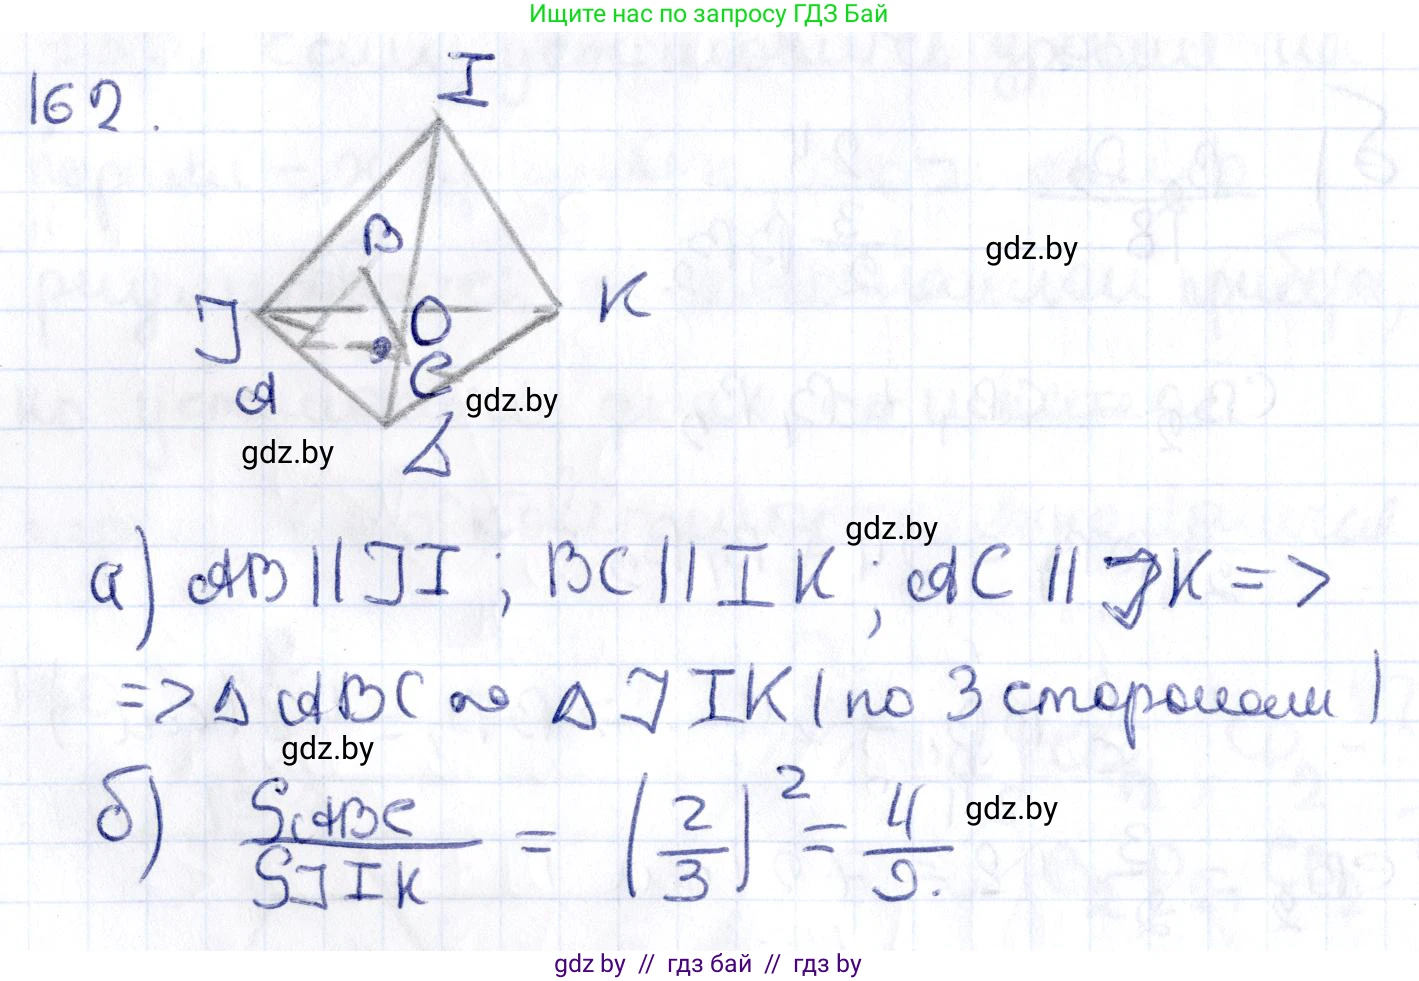 Ищите нас по запросу ГДЗ Бай
162.
I
B
gdz.by
J
O
K
A
C
gdz.by
gdz.by
L
gdz.by
а) AB || JI ; BC || IK ; AC || JK =>
=> Δ ABC ∾ Δ JIK (по 3 сторонам)
gdz.by
б) SABC / SJIK = (2/3)² = 4/9.
gdz.by
gdz.by
gdz.by // гдз бай // гдз by